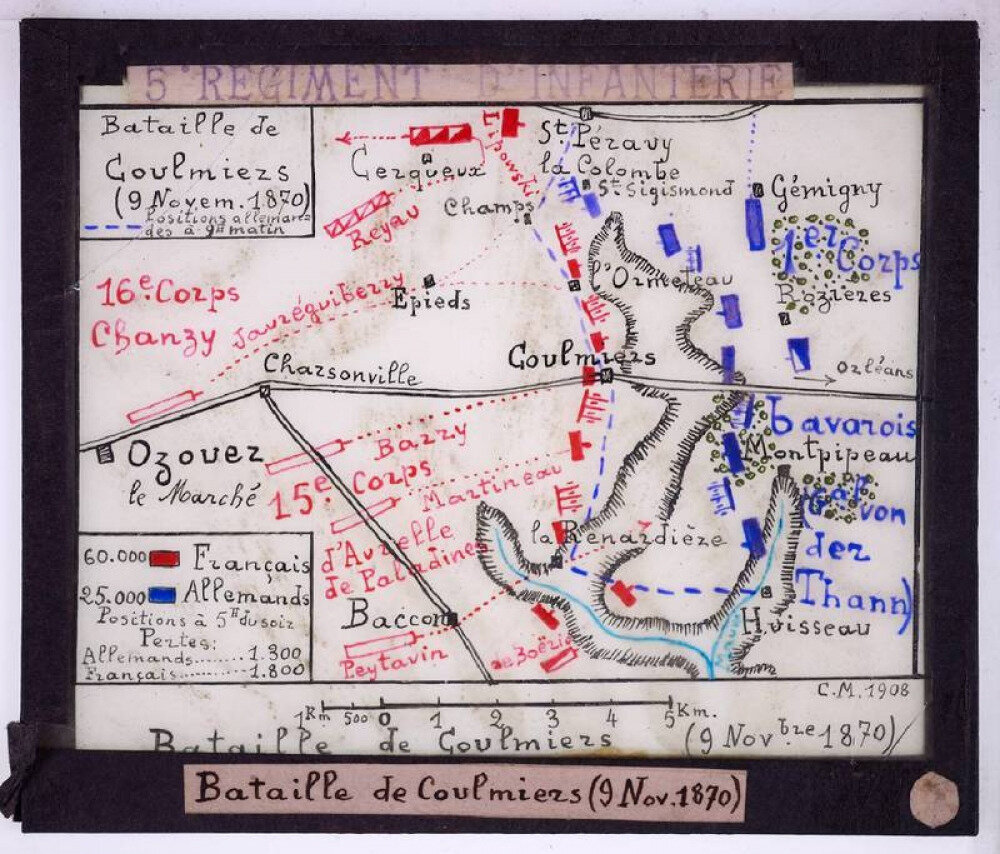 5e REGIMENT D'INFANTERIE
Bataille de
Coulmiers
(9 Novem. 1870)
Positions alleman
des à 9H matin
Lipowski
St. Péravy
la Colombe
St. Sigismond
Gémigny
Cerqueux
Champs
Reyau
1er Corps
16e. Corps
Chanzy
Jauréguiberry
Epieds
l'Ormeteau
Rozières
Coulmiers
Charsonville
Orléans
Ozouer
le Marché
Barry
bavarois
Montpipeau
15e Corps
Martineau
d'Aurelle
de Paladines
(Gal von
der
Thann)
la Renardière
60.000 Français
25.000 Allemands
Positions à 5H du soir
Pertes:
Allemands........1.300
Français............1.800
Baccon
Huisseau
Peytavin
Mauve
C.M. 1908
1Km 500 0 1 2 3 4 5 Km.
Bataille de Coulmiers (9 Novbre 1870)
Bataille de Coulmiers (9 Nov. 1870)